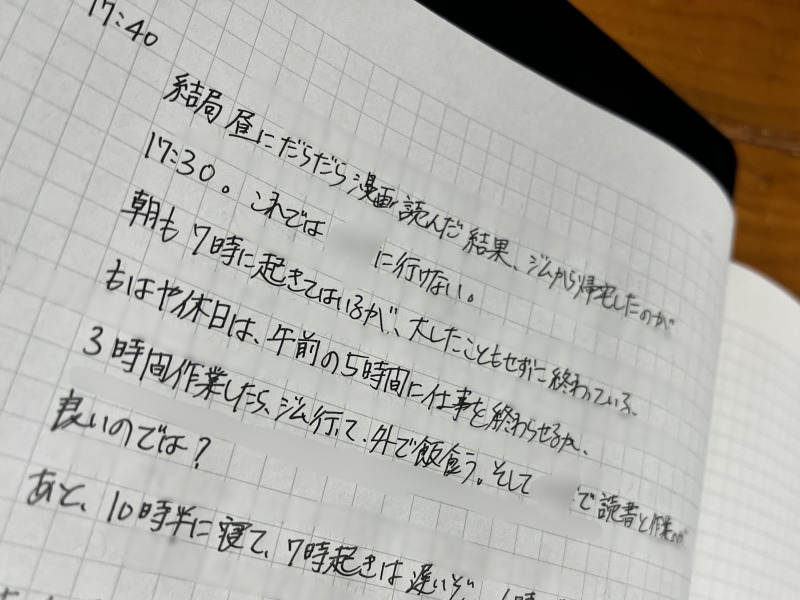 17:40
結局昼にだらだら漫画読んだ結果、ジムから帰宅したのが
17:30。これでは に行けない。
朝も7時に起きてはいるが、大したこともせずに終わっている。
もはや休日は、午前の5時間に仕事を終わらせるか、
3時間作業したら、ジム行って、外で飯食う。そして で読書と作業が
良いのでは?
あと、10時半に寝て、7時起きは遅いぞ。